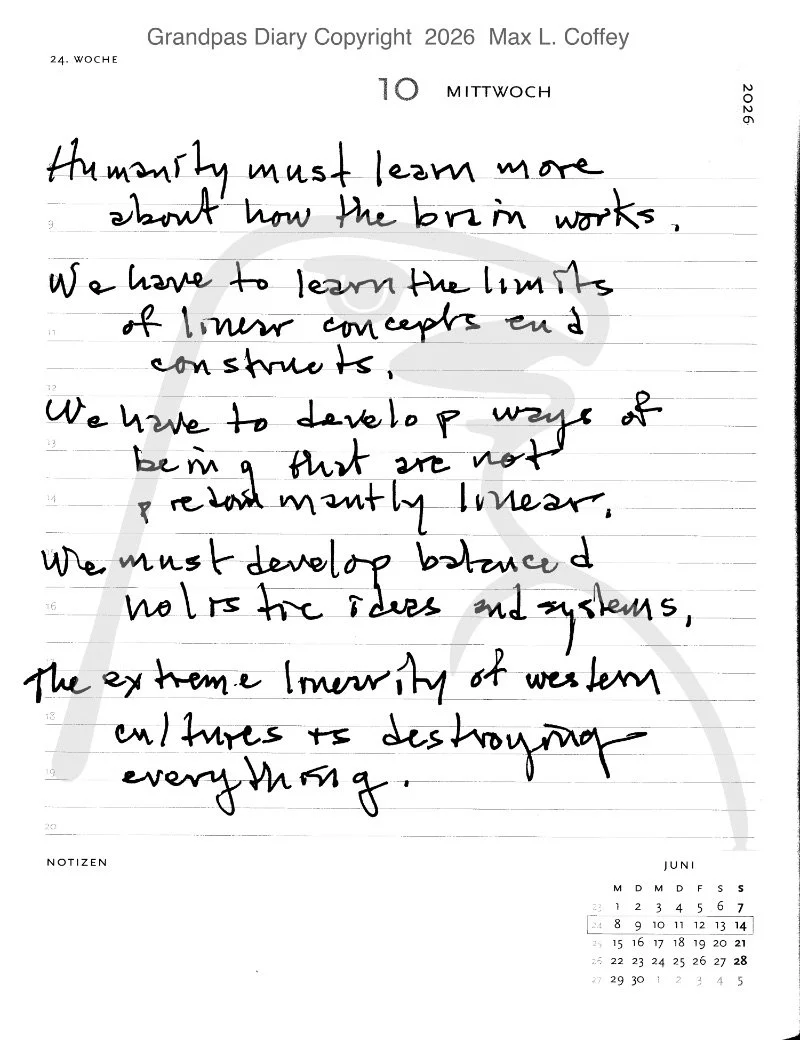 Grandpas Diary Copyright 2026 Max L. Coffey
24. WOCHE
10 MITTWOCH
2026
Humanity must learn more
about how the brain works.
We have to learn the limits
of linear concepts and
constructs.
We have to develop ways of
being that are not
predominantly linear.
We must develop balanced
holistic ideas and systems,
The extreme linearity of western
cultures is destroying
everything.
9
11
12
13
14
16
18
19
20
NOTIZEN
JUNI
M D M D F S S
23 1 2 3 4 5 6 7
24 8 9 10 11 12 13 14
25 15 16 17 18 19 20 21
26 22 23 24 25 26 27 28
27 29 30 1 2 3 4 5